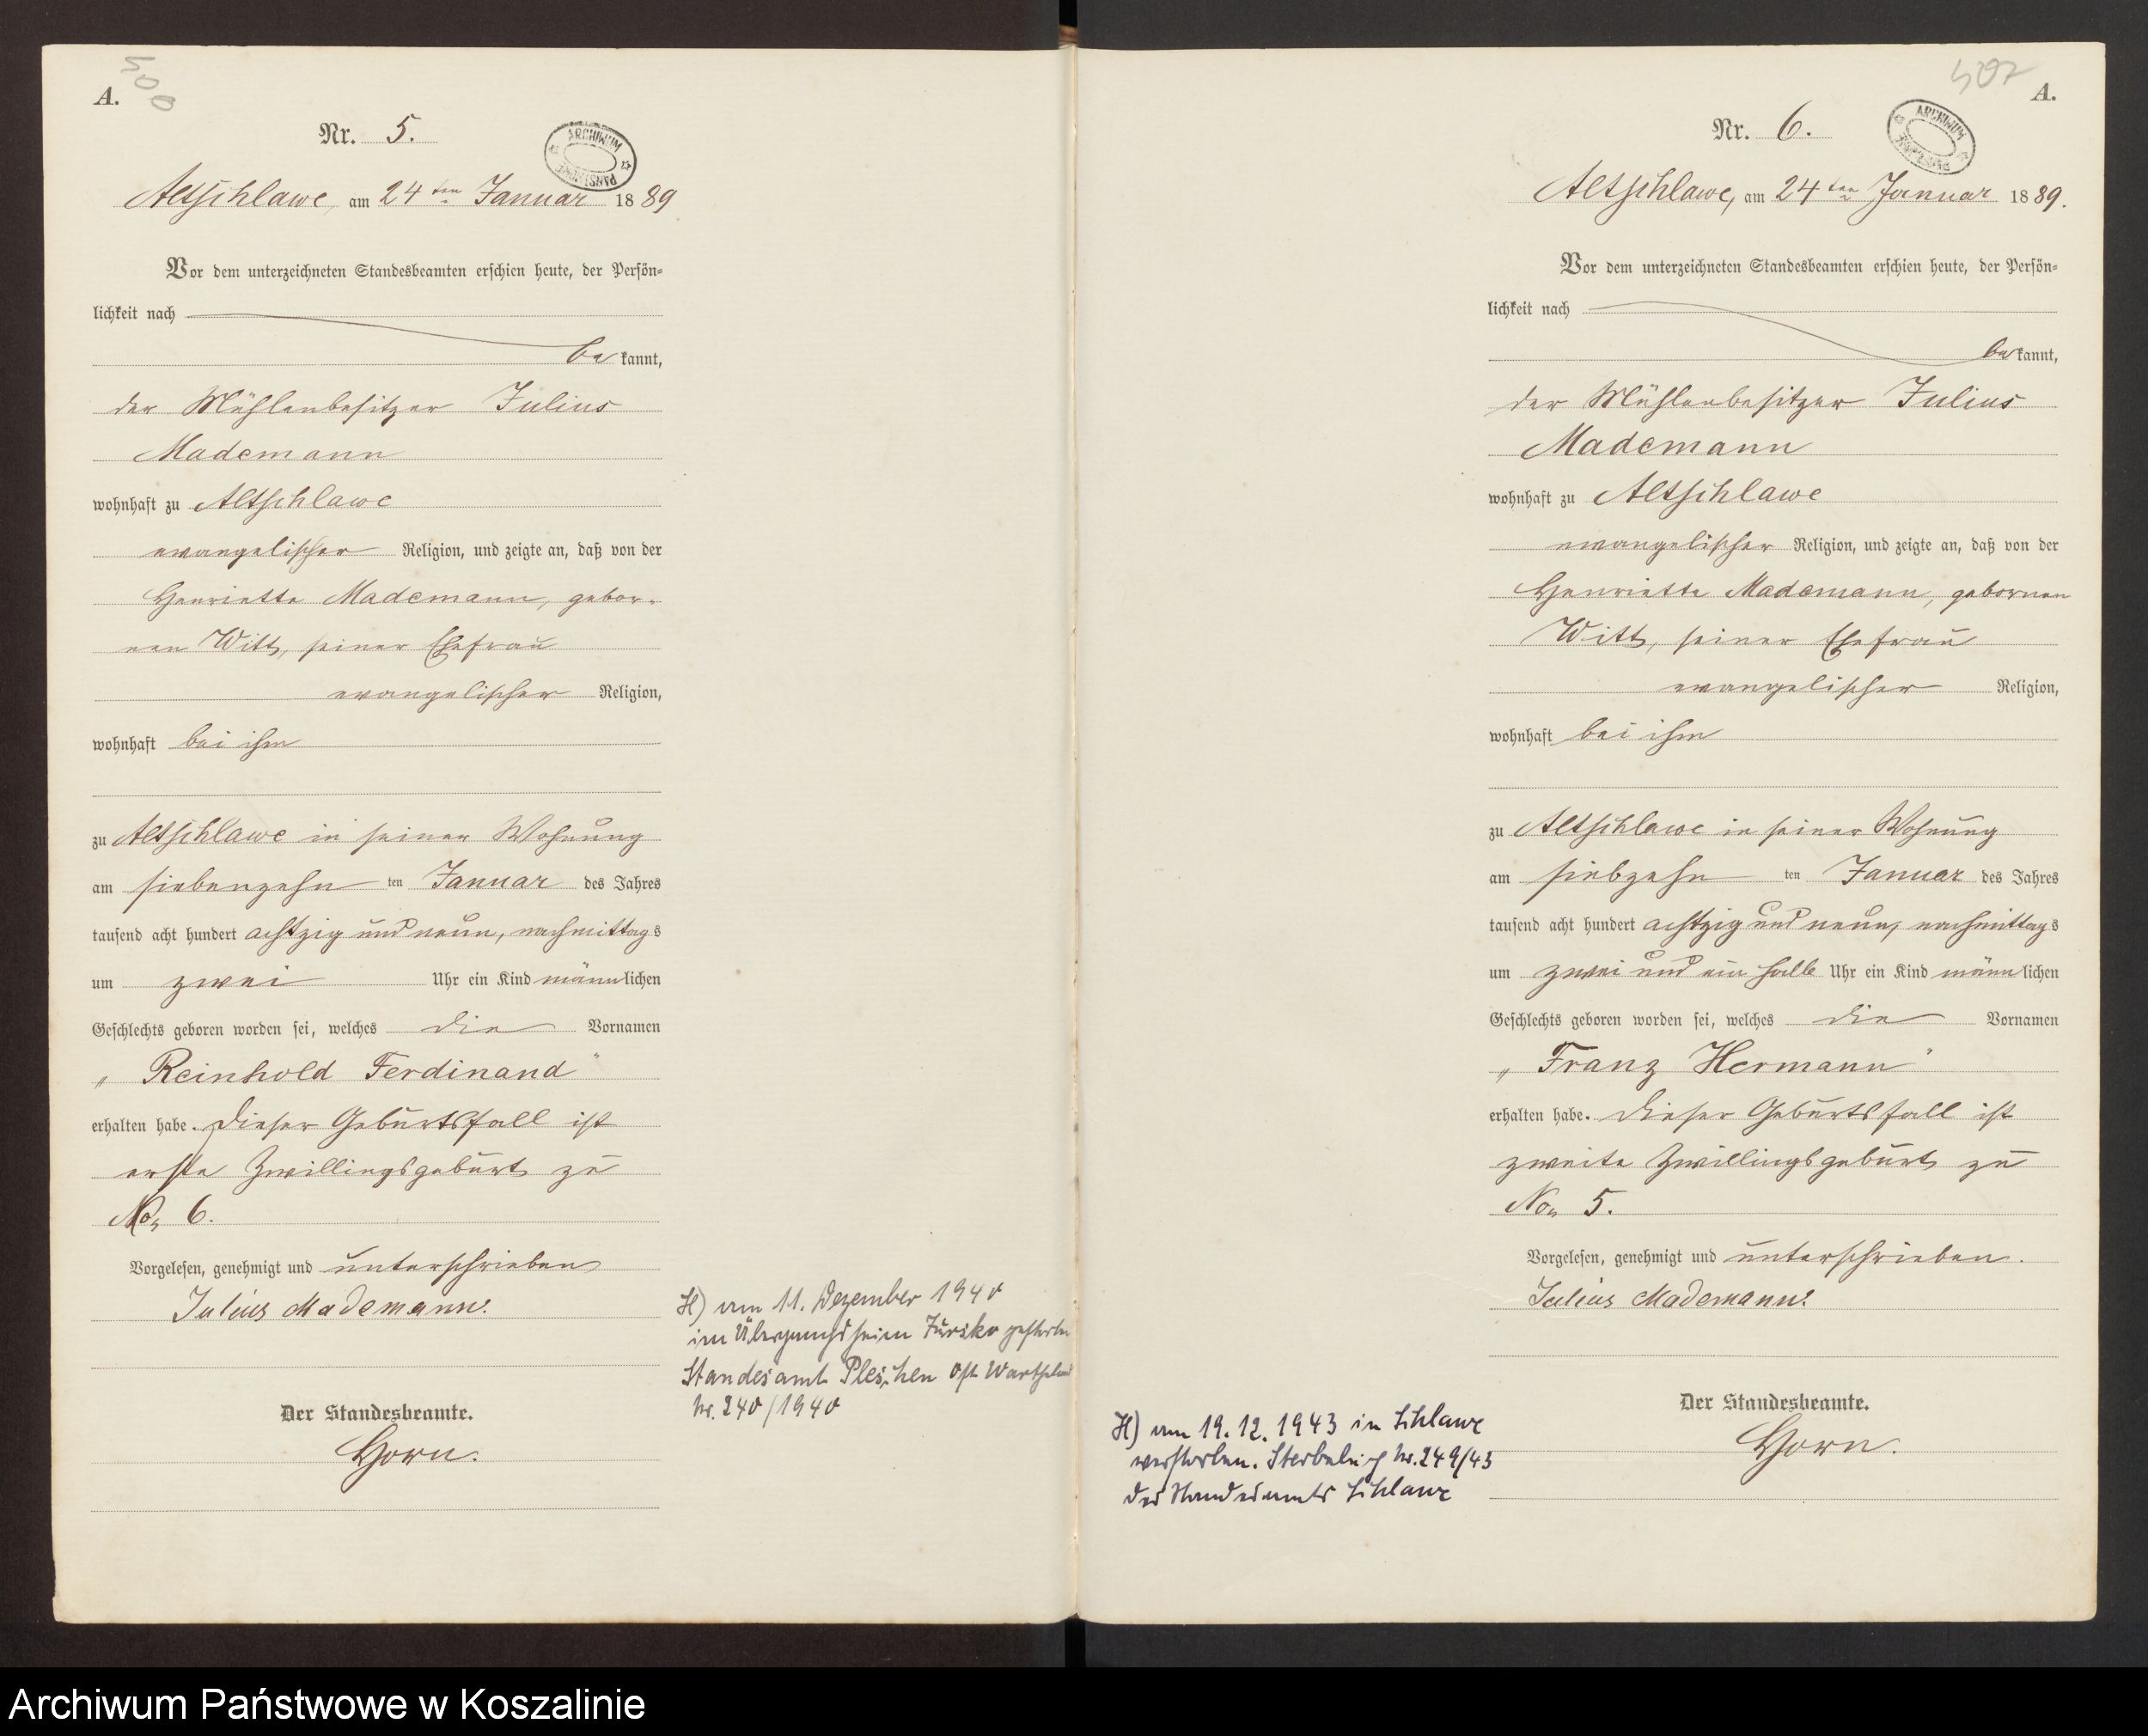 A.
500
Nr. 5.
ARCHIWUM PAŃSTWOWE
Altschlawe, am 24ten Januar 1889
Vor dem unterzeichneten Standesbeamten erschien heute, der Persön-
lichkeit nach
bekannt,
der Mühlenbesitzer Julius
Mademann
wohnhaft zu Altschlawe
evangelischer Religion, und zeigte an, daß von der
Henriette Mademann, gebor-
nen Witt, seiner Ehefrau
evangelischer Religion,
wohnhaft bei ihm
zu Altschlawe in seiner Wohnung
am siebenzehn ten Januar des Jahres
tausend acht hundert achtzig und neun, nachmittags
um zwei Uhr ein Kind männlichen
Geschlechts geboren worden sei, welches die Vornamen
„Reinhold Ferdinand"
erhalten habe. Dieser Geburtsfall ist
erste Zwillingsgeburt zu
No. 6.
Vorgelesen, genehmigt und unterschrieben
Julius Mademann.
Der Standesbeamte.
Horn.
H) am 11. Dezember 1940
im Übergangsheim Tursko gestorben
Standesamt Pleschen Ost Wartheland
Nr. 240/1940
A.
Nr. 6.
ARCHIWUM
Altschlawe, am 24ten Januar 1889.
Vor dem unterzeichneten Standesbeamten erschien heute, der Persön-
lichkeit nach
bekannt,
der Mühlenbesitzer Julius
Mademann
wohnhaft zu Altschlawe
evangelischer Religion, und zeigte an, daß von der
Henriette Mademann, gebornen
Witt, seiner Ehefrau
evangelischer Religion,
wohnhaft bei ihm
zu Altschlawe in seiner Wohnung
am siebzehn ten Januar des Jahres
tausend acht hundert achtzig und neun, nachmittags
um zwei und ein halb Uhr ein Kind männlichen
Geschlechts geboren worden sei, welches die Vornamen
„Franz Hermann"
erhalten habe. Dieser Geburtsfall ist
zweite Zwillingsgeburt zu
No. 5.
Vorgelesen, genehmigt und unterschrieben.
Julius Mademann.
Der Standesbeamte.
Horn.
H) am 19.12.1943 in Schlawe
verstorben. Sterbebuch Nr. 249/43
des Standesamts Schlawe
Archiwum Państwowe w Koszalinie